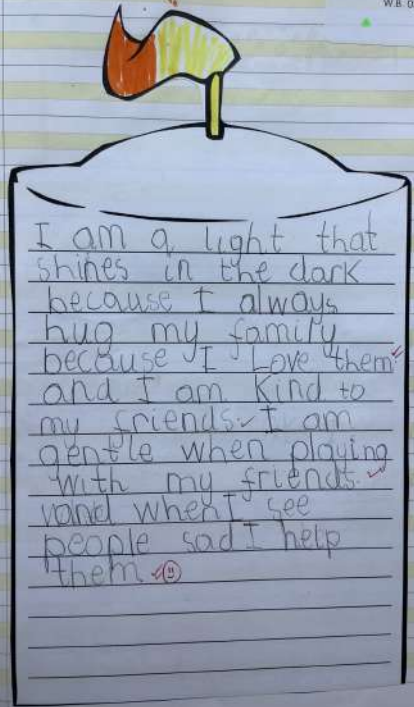 W.B. 0
I am a light that
shines in the dark
because I always
hug my family
because I Love them
and I am kind to
my friends. I am
gentle when playing
with my friends.
and when I see
people sad I help
them.